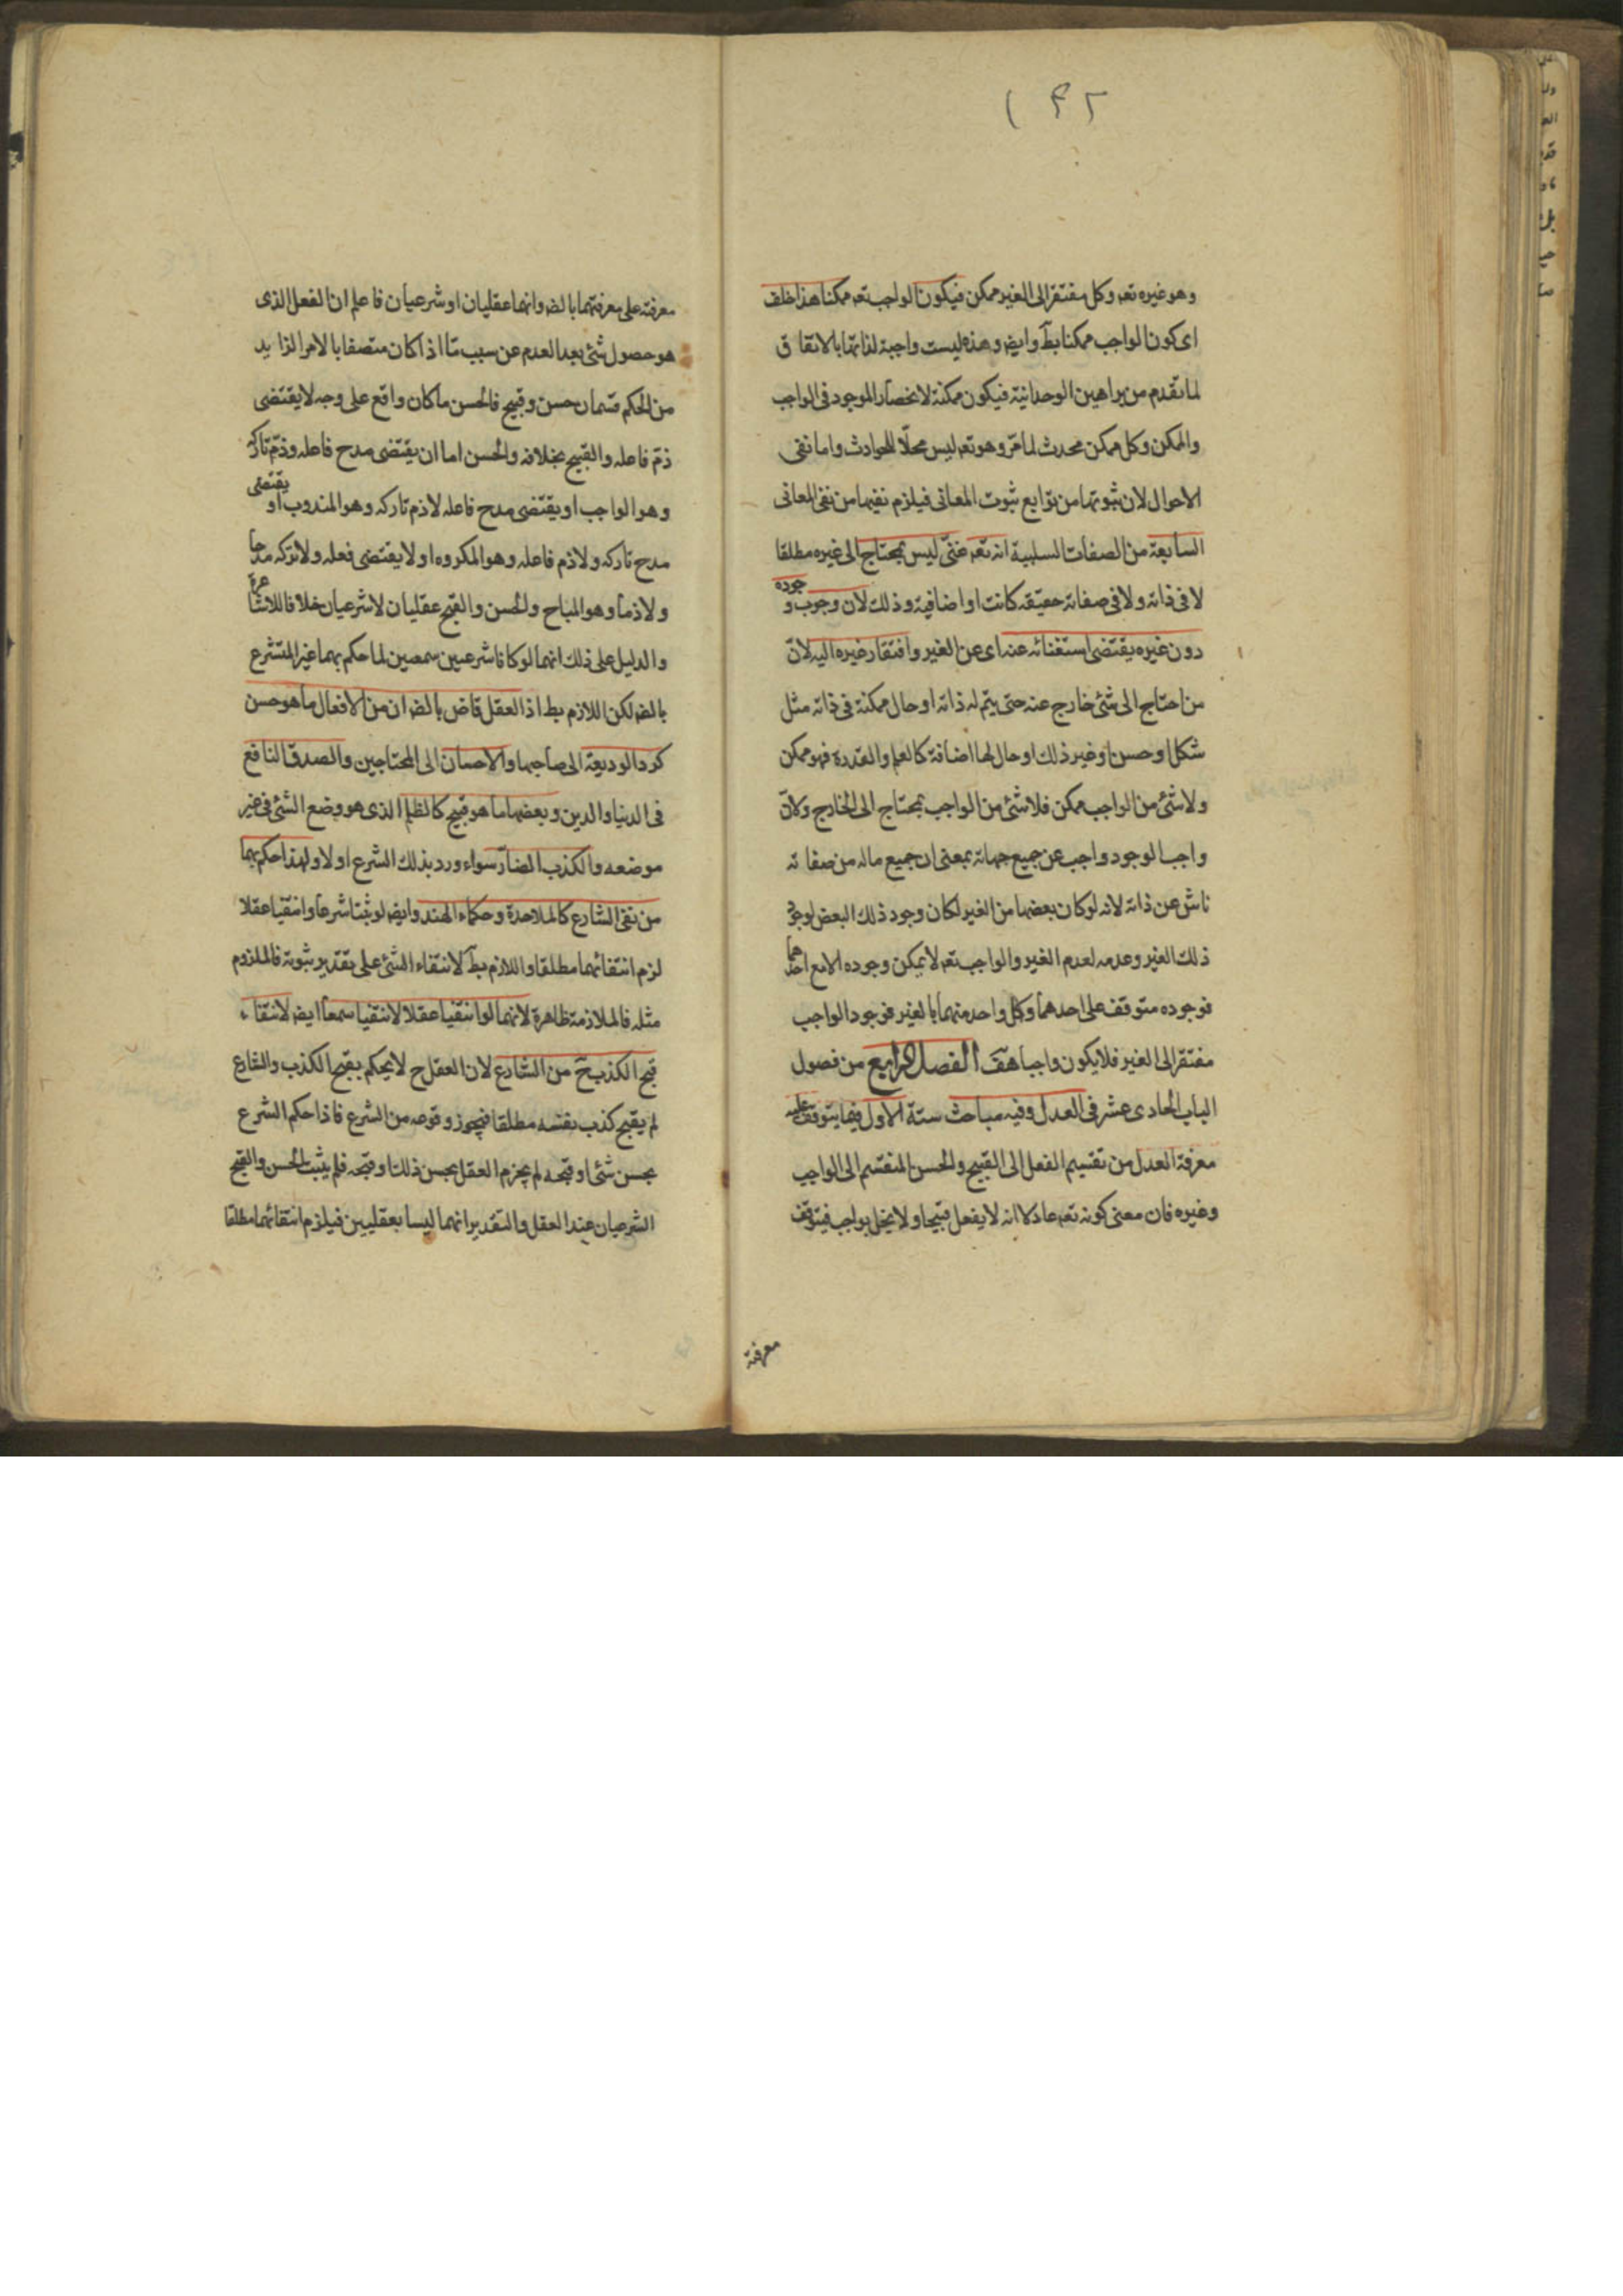 ١٤٢
وهو غيره تعه وكل مفتقر الى الغير ممكن فيكون الواجب تعه ممكنا هذا خلف
اى كون الواجب ممكنا بط وايضه وهذه ليست واجبة لذاتها بالاتفاق
لما تقدم من براهين الوحدانية فيكون ممكنة لانحصار الموجود فى الواجب
والممكن وكل ممكن محدث لما مر وهو تعه ليس محلا للحوادث واما نفى
الاحوال لان ثبوتها من توابع ثبوت المعانى فيلزم نفيها من نفى المعانى
السابعة من الصفات السلبية انه تعه غنى ليس بمحتاج الى غيره مطلقا
لا فى ذاته ولا فى صفاته حقيقه كانت او اضافية وذلك لان وجوب وجوده
دون غيره يقتضى استغنائه عنه اى عن الغير وافتقار غيره اليه لان
من احتاج الى شئ خارج عنه حتى يتم له ذاته او حال ممكنة فى ذاته مثل
شكل او حسن او غير ذلك او حال لها اضافة كالعلم والقدرة فهو ممكن
ولا شئ من الواجب بممكن فلا شئ من الواجب بمحتاج الى الخارج ولان
واجب الوجود واجب عن جميع جهاته بمعنى ان جميع ماله من صفاته
ناش عن ذاته لانه لو كان بعضها من الغير لكان وجود ذلك البعض لوجود
ذلك الغير وعدمه لعدم الغير والواجب تعه لا يمكن وجوده الا مع احدهما
فوجوده متوقف على احدهما وكل واحد منهما بالغير فوجود الواجب
مفتقر الى الغير فلا يكون واجبا هف الفصل الرابع من فصول
الباب الحادى عشر فى العدل وفيه مباحث ستة الاول فيما يتوقف عليه
معرفة العدل من تقسيم الفعل الى القبيح والحسن المنقسم الى الواجب
وغيره فان معنى كونه تعه عادلا انه لا يفعل قبيحا ولا يخل بواجب فيتوقف
معرفة
معرفته على معرفتهما بالضه وانهما عقليان او شرعيان فاعلم ان الفعل الذى
هو حصول شئ بعد العدم عن سبب ما اذا كان متصفا بالامر الزايد
من الحكم قسمان حسن وقبيح فالحسن ما كان واقع على وجه لا يقتضى
ذم فاعله والقبيح بخلافه والحسن اما ان يقتضى مدح فاعله وذم تاركه
وهو الواجب او يقتضى مدح فاعله لا ذم تاركه وهو المندوب او يقتضى
مدح تاركه ولا ذم فاعله وهو المكروه او لا يقتضى فعله ولا تركه مدحا
ولا ذما وهو المباح والحسن والقبح عقليان لا شرعيان خلافا للاشاعرة
والدليل على ذلك انهما لو كانا شرعيين سمعيين لما حكم بهما غير المتشرع
بالضه لكن اللازم بط اذ العقل قاض بالضه ان من الافعال ما هو حسن
كرد الوديعة الى صاحبها والاحسان الى المحتاجين والصدق النافع
فى الدنيا والدين وبعضها ما هو قبيح كالظلم الذى هو وضع الشئ فى غير
موضعه والكذب الضار سواء ورد بذلك الشرع او لا ولهذا حكم بهما
من نفى الشارع كالملاحدة وحكماء الهند وايضه لو ثبتا شرعا وانتفيا عقلا
لزم انتفائهما مطلقا واللازم بط لانتفاء الشئ على تقدير ثبوته فالملزوم
مثله فالملازمة ظاهرة لانهما لو انتفيا عقلا لانتفيا سمعا ايضه لانتفاء
قبح الكذب ح من الشارع لان العقل ح لا يحكم بقبح الكذب والشارع
لم يقبح كذب نفسه مطلقا فيجوز وقوعه من الشرع فاذا حكم الشرع
بحسن شئ او قبحه لم يجزم العقل بحسن ذلك او قبحه فلم يثبت الحسن والقبح
الشرعيان عند العقل والتقدير انهما ليسا بعقليين فيلزم انتفائهما مطلقا